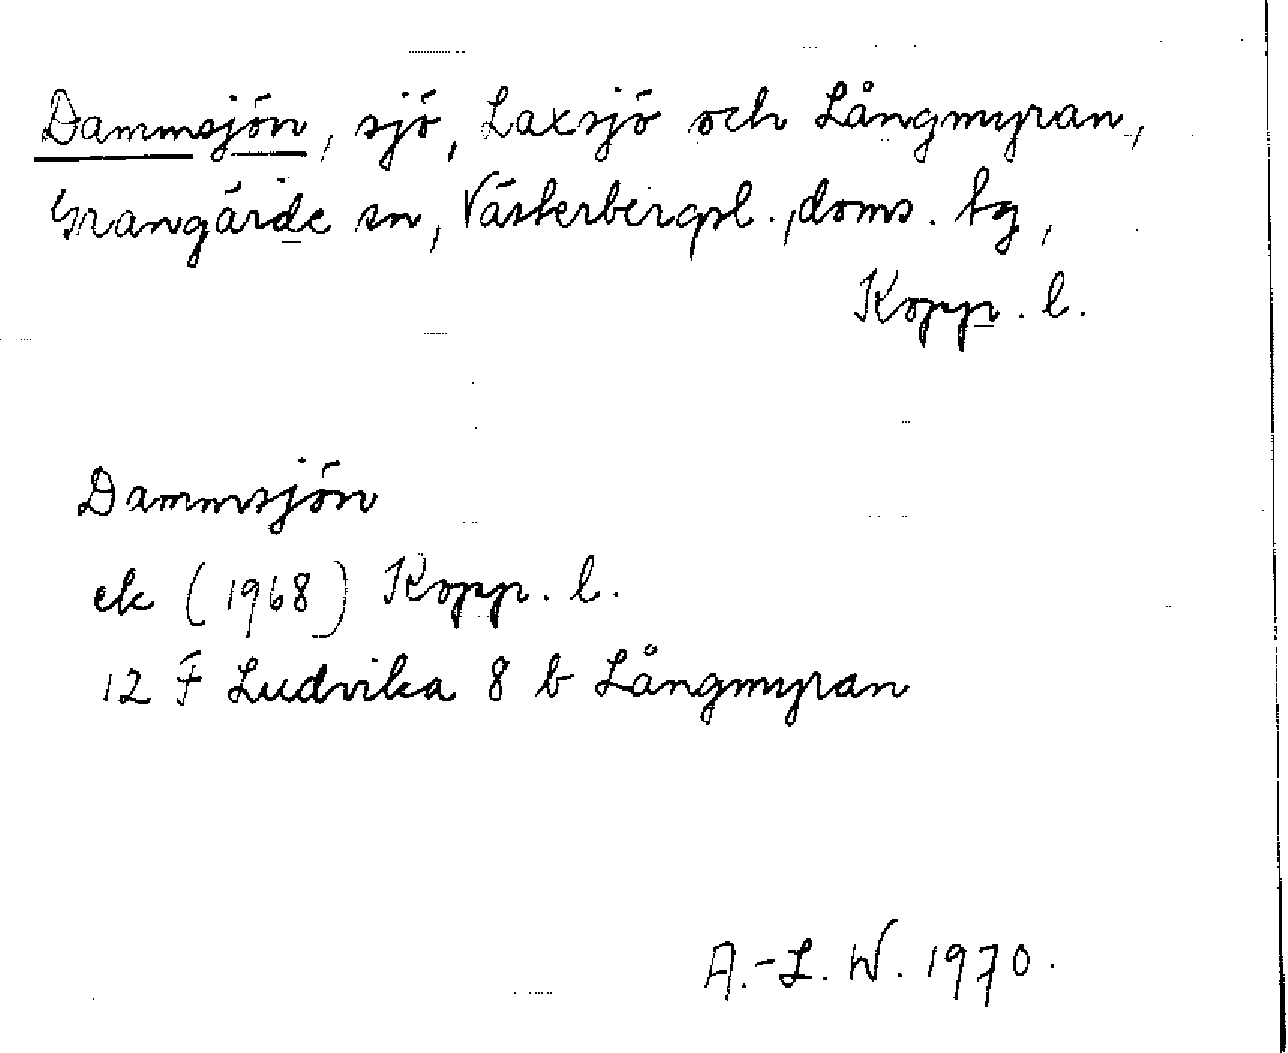 Dammsjön, sjö, Laxsjö och Långmyran,
Grangärde sn, Västerbergsl., doms. tg,
Kopp. l.
Dammsjön
ek (1968) Kopp. l.
12 F Ludvika 8 b Långmyran
A.-L. W. 1970.